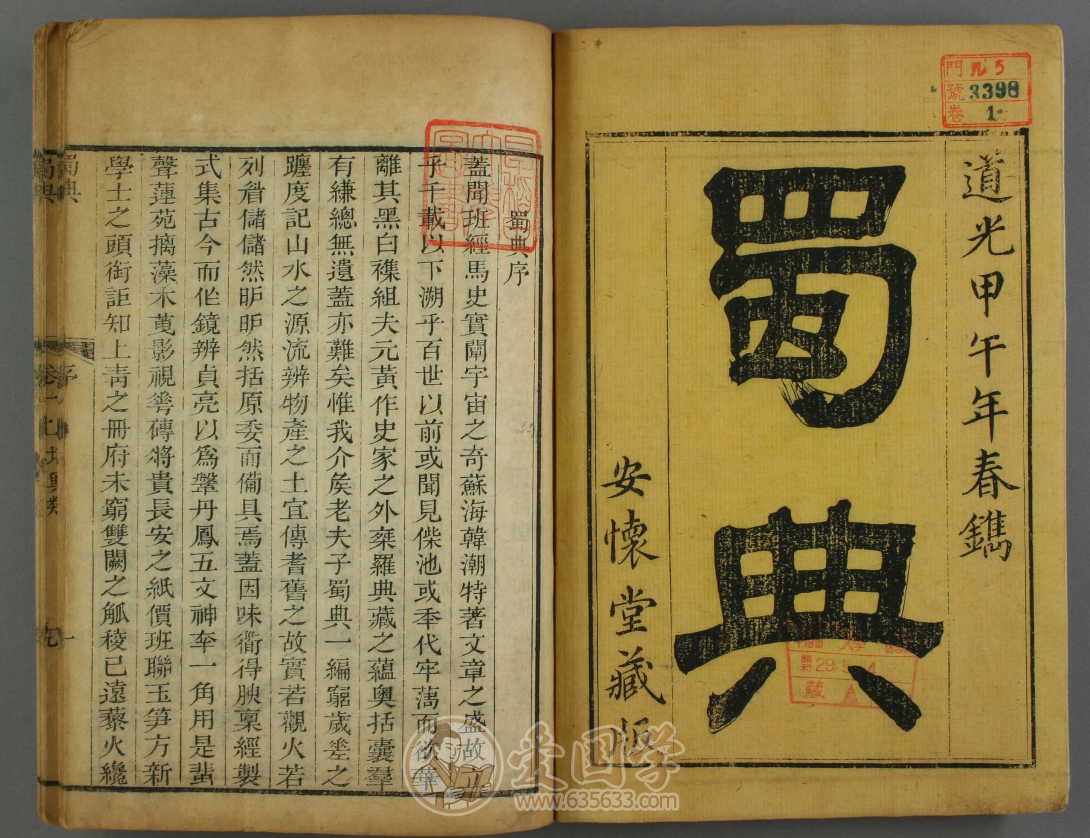 道光甲午年春鐫
蜀典
安懷堂藏板
門 ル5
號 3398
卷 1
蜀典序
蓋聞班經馬史實闡宇宙之奇蘇海韓潮特著文章之盛故
乎千載以下溯乎百世以前或聞見傑池或秊代牢蕅而欲
離其黑白襍組夫元黃作史家之外乘羅典藏之蘊奧括囊羣
有縑總無遺蓋亦難矣惟我介矦老夫子蜀典一編窮歲㙐之
躔度記山水之源流辨物產之土宜傳耆舊之故實若觀火若
列眉儲儲然昈昈然括原委而僃具焉蓋因味衜得腴稟經製
式集古今而作鏡辨貞亮以爲鞶丹鳳五文神羍一角用是蜚
聲蓮苑摛藻木莄影視甎將貴長安之紙價班聯玉笋方新
學士之頭銜詎知上靑之冊府未窮雙闕之觚稜已遠藜火纔
蜀典
序
一
爱国学
www.635633.com